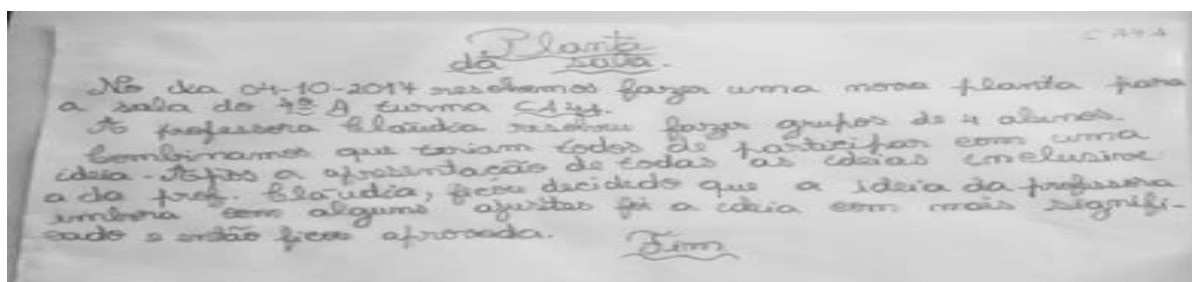 Planta
da sala.
No dia 04-10-2017 resolvemos fazer uma nova planta para
a sala do 4º A turma CA4A.
A professora Claúdia resolveu fazer grupos de 4 alunos.
Combinamos que teriam todos de participar com uma
ideia. Após a apresentação de todas as ideias inclusive
a da prof. Claúdia, ficou decidido que a ideia da professora
embora com alguns ajustes foi a ideia com mais signifi-
cado e então ficou aprovada.
Fim